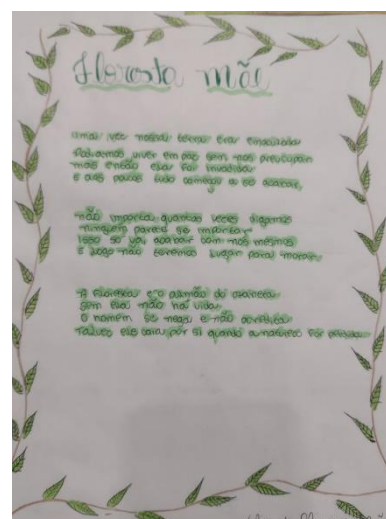 Floresta mãe
uma vez nossa terra era encantada
Podíamos viver em paz sem nos preocupar
mas então ela foi invadida
e aos poucos tudo começou a se acabar,
não importa quantas vezes digamos
ninguém parece se importar
Isso só vai acabar com nós mesmos
E logo não teremos lugar para morar
A Floresta é o pulmão do planeta
sem ela não há vida
O homem se nega e não acredita
Talvez ele caia por si quando a natureza for